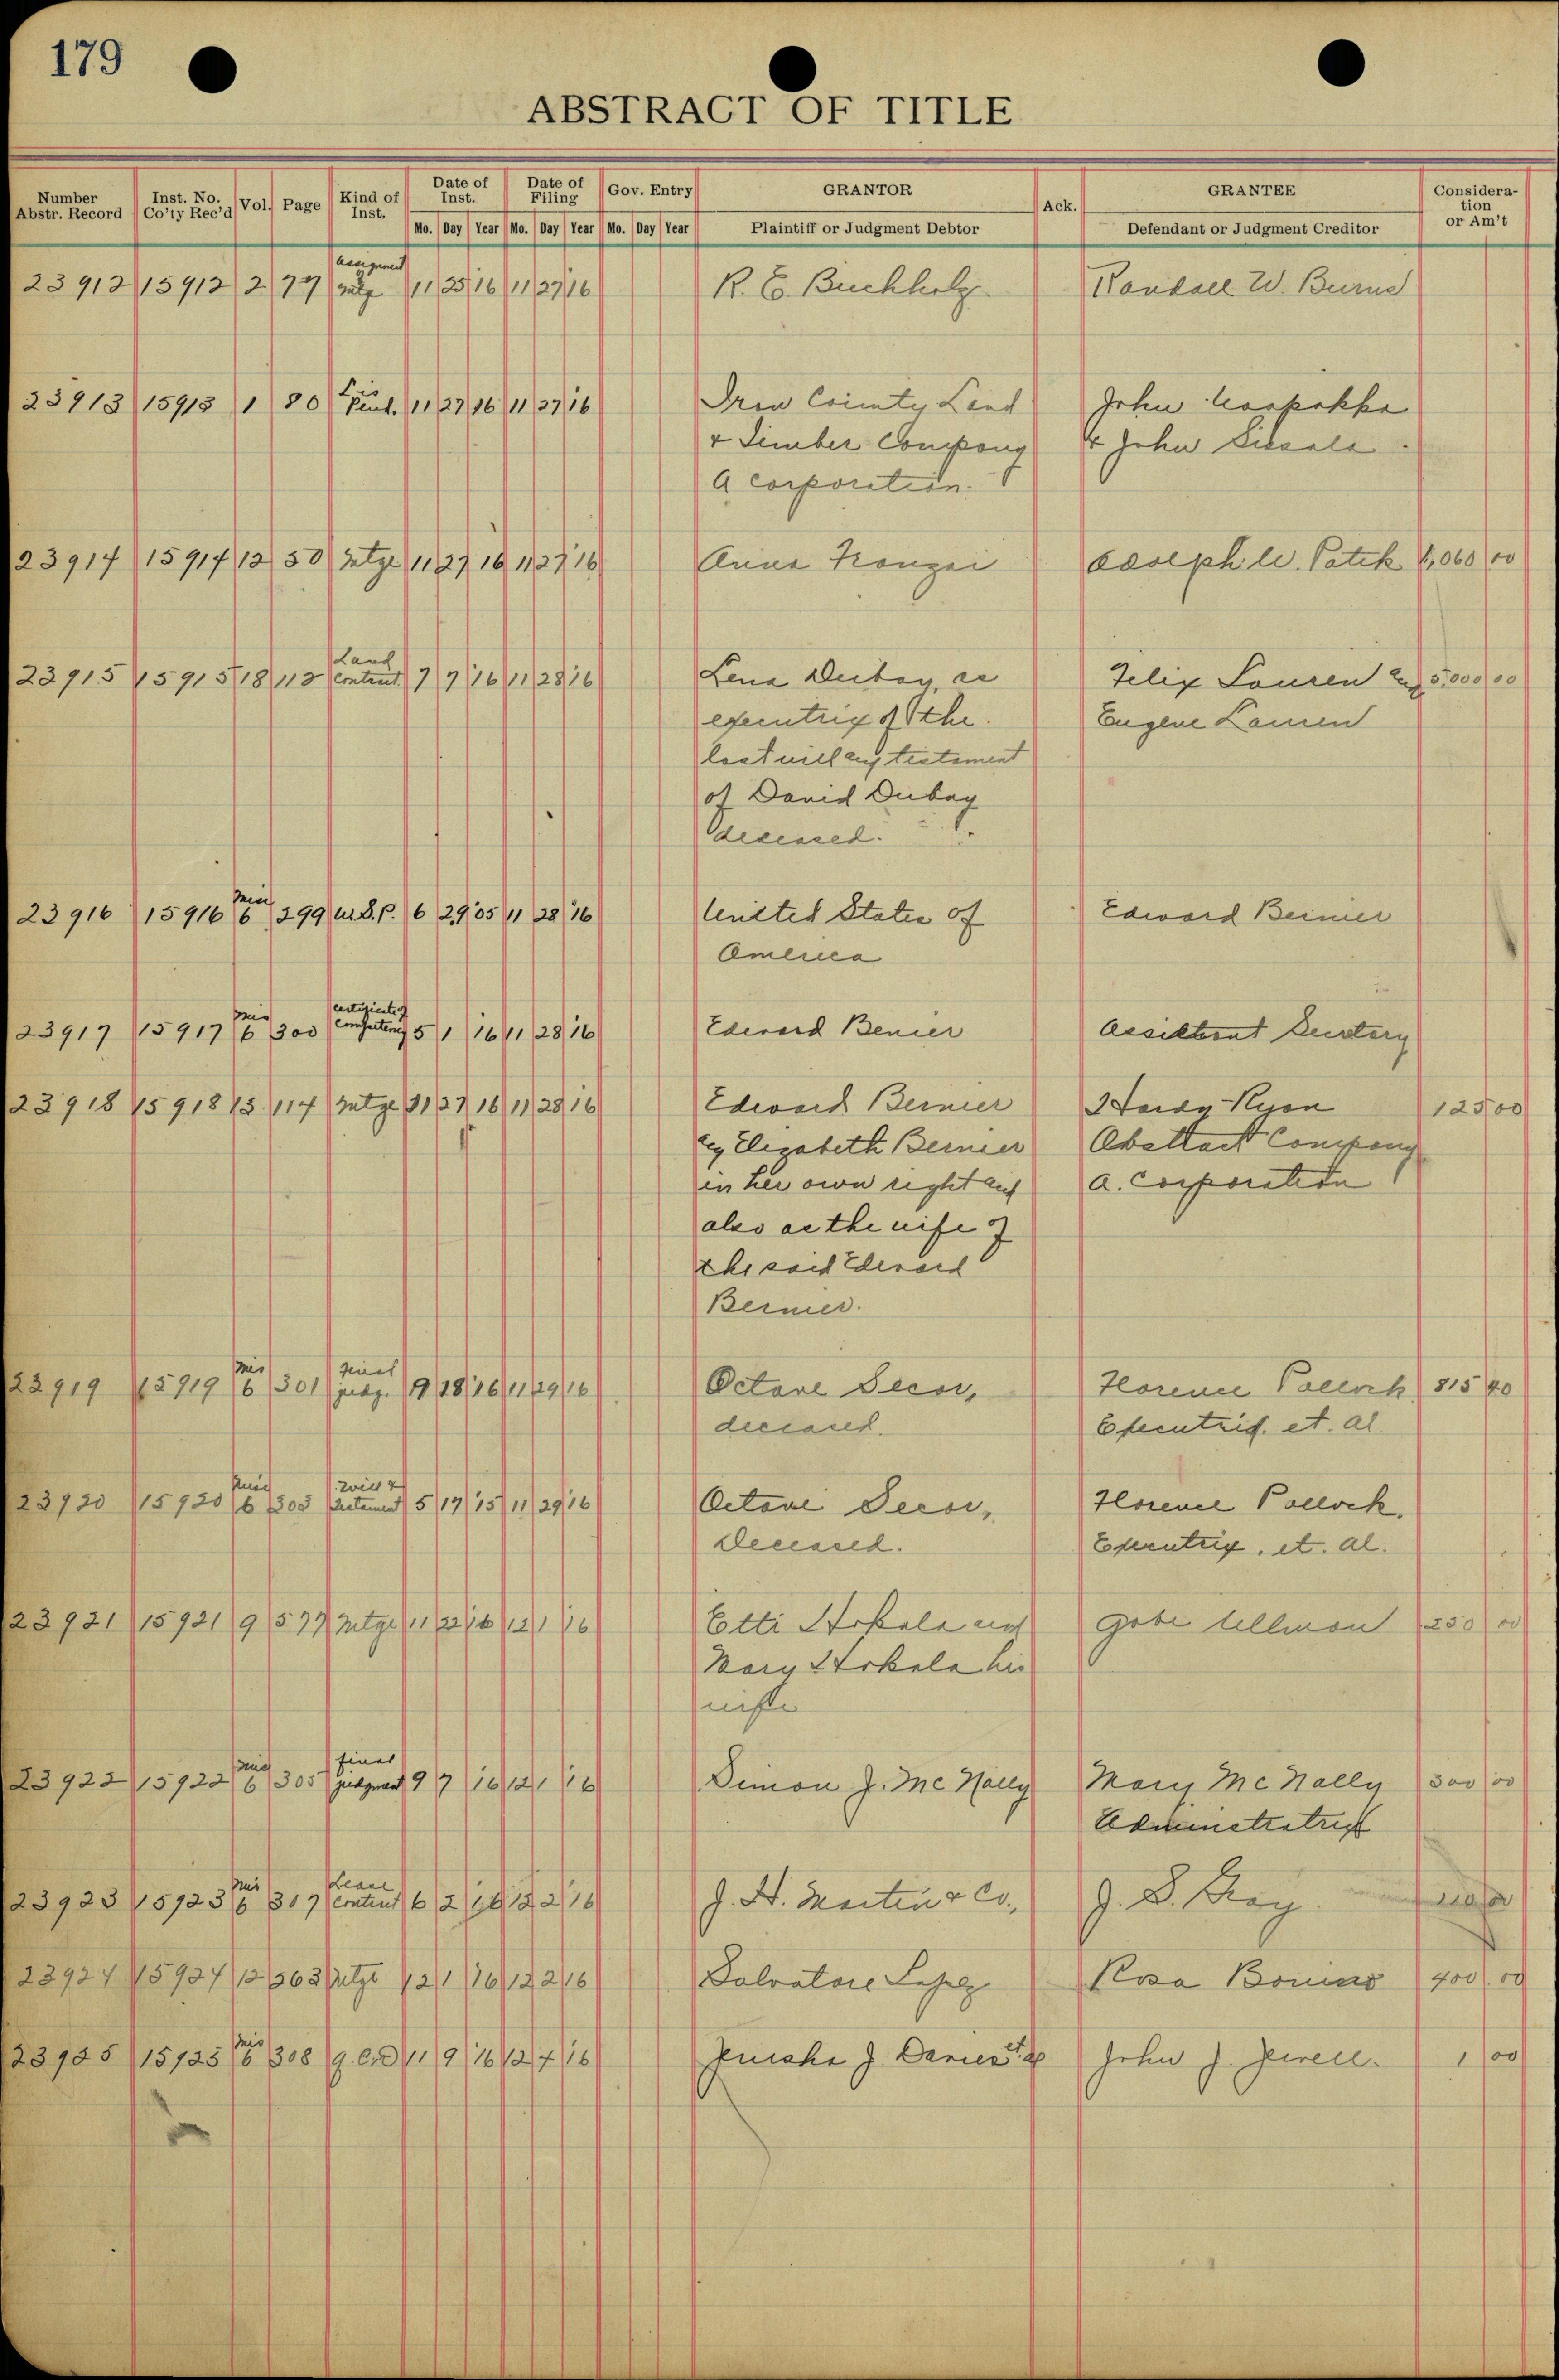 179
ABSTRACT OF TITLE
Number Abstr. Record Inst. No. Co'ty Rec'd Vol. Page Kind of Inst. Date of Inst. Mo. Day Year Date of Filing Mo. Day Year Gov. Entry Mo. Day Year GRANTOR Plaintiff or Judgment Debtor Ack. GRANTEE Defendant or Judgment Creditor Consideration or Am't
Assignment
23912 15912 2 77 Mtg 11 25 16 11 27 16 R. E. Buchholz Randall W. Burns
Lis
23913 15913 1 80 Pend. 11 27 16 11 27 16 Iron County Land John
& Timber Company & John
a corporation.
23914 15914 12 50 Mtge 11 27 16 11 27 16 Anna Adolph W. Patek 1,060 00
Land
23915 15915 18 112 Contract 7 7 16 11 28 16 Lena Dubay, as Felix Lauren and 5,000 00
executrix of the Eugene Lauren
last will and testament
of David Dubay
deceased.
Mis
23916 15916 6 299 U.S.P. 6 29 05 11 28 16 United States of Edward Bernier
America
Mis certificate of
23917 15917 6 300 Competency 5 1 16 11 28 16 Edward Benier Assistant Secretary
23918 15918 13 114 Mtge 11 27 16 11 28 16 Edward Bernier Hardy-Ryan 125 00
& Elizabeth Bernier Abstract Company
in her own right and a. Corporation
also as the wife of
the said Edward
Bernier.
Mis Final
23919 15919 6 301 judg. 9 18 16 11 29 16 Octave Decor, Florence Pollock 815 40
deceased. Executrix. et. al.
Misc Will &
23920 15920 6 303 testament 5 17 15 11 29 16 Octave Decor, Florence Pollock,
Deceased. Executrix, et. al.
23921 15921 9 577 Mtge 11 22 16 12 1 16 Otti Hokala and Gabe Ullman 250 00
Mary Hokala his
wife
Mis final
23922 15922 6 305 judgment 9 7 16 12 1 16 Simon J. McNally Mary McNally 300 00
Administratrix
Mis Lease
23923 15923 6 307 Contract 6 2 16 12 2 16 J. H. Martin & Co., J. S.
23924 15924 12 363 Mtge 12 1 16 12 2 16 Salvatore Rosa Bonino 400 00
Mis
23925 15925 6 308 Q.C.D 11 9 16 12 4 16 J. Davies et al John J. Jewell. 1 00